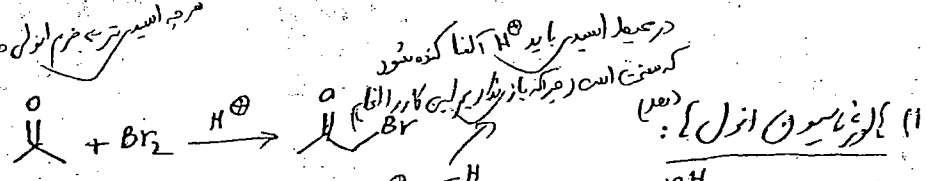 هرچه اسیدی‌تر ← فرم انولی
در محیط اسیدی باید H⊕ آلفا کنده شود
که سخت است (چراکه باز نداریم این کار را انجام
دهد)
1) هالوژناسیون انول ها:
O + Br₂ H⊕ → O Br
⊕ H